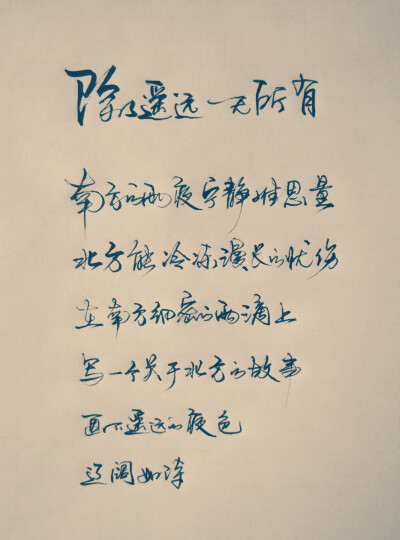 除了遥远 一无所有
南方的雨夜宁静难思量
北方能冷冻漫长的忧伤
在南方细密的雨滴上
写一个关于北方的故事
画下遥远的夜色
辽阔如